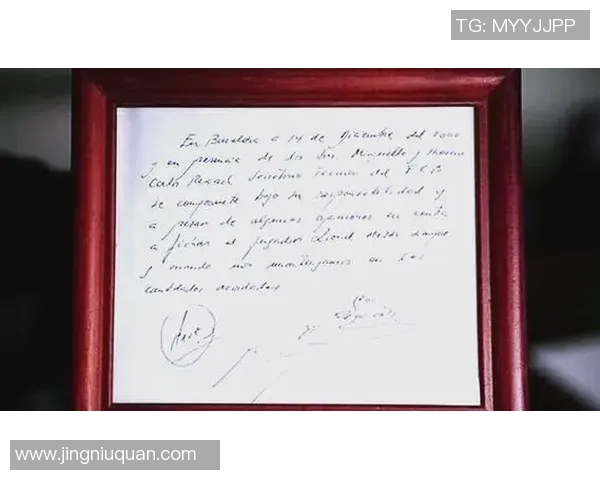 TG: MYYJJPP
En Barcelona a 14 de Diciembre del 2000
y en presencia de los Srs. Minguella y Horacio
Carlos Rexach Secretario Técnico del F.C.B
se compromete bajo su responsabilidad y
a pesar de algunas opiniones en contra
a fichar al jugador Lionel Messi
y cuando nos mantengamos en las
cantidades acordadas
www.jingniuquan.com